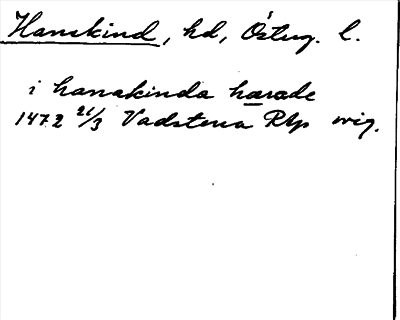 Hanekind, hd, Östug. l.
i hanakinda hærade
1472 21/3 Vadstena RAp orig.